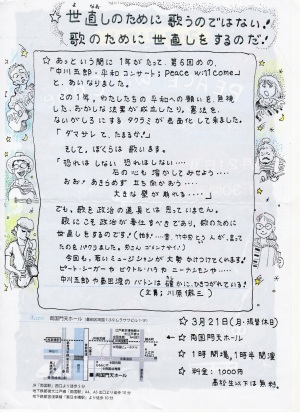 ☆世直しのために歌うのではない!
歌のために世直しをするのだ!☆
☆あっという間に1年がたって、第6回めの、
「中川五郎・平和コンサート;Peace will come」
と、あいなりました。
この1年、わたしたちの平和への願いを無視
した、おかしな法案が成立したり、憲法を、
ないがしろにするタクラミが表面化して来ました。
「ダマサレて、たまるか!」
そして、ぼくらは歌います。
「恐れはしない 恐れはしない・・・
石の心も溶かしてみせよう・・・・
おお!あきらめず 立ち向かおう・・・・
大きな壁が崩れる・・・・」
でも、歌を政治の道具とは思っていません。
歌にこそ政治が奉仕すべきであり、歌のために
世直しをするのです。
今回も、若いミュージシャンが大勢かけつけてくれます!
ピート・シーガーやビクトル・ハラや
中川五郎や高田渡のバトンは確かに、ひきつがれている!
☆両国門天ホール
☆3月21日(月・振替休日)
☆両国門天ホール
☆1時開場、1時半開演
☆料金:1000円
高校生以下は無料。